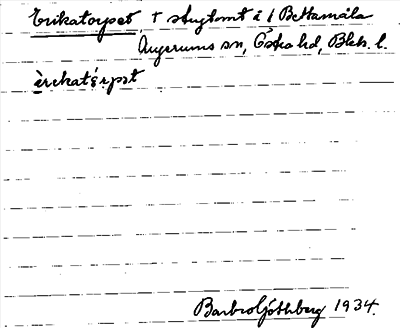 Erikatorpet, † stugtomt å 1 Bettamåla
Augerums sn, Östra hd, Blek. l.
èrekatårpst
Barbro Göthberg 1934.